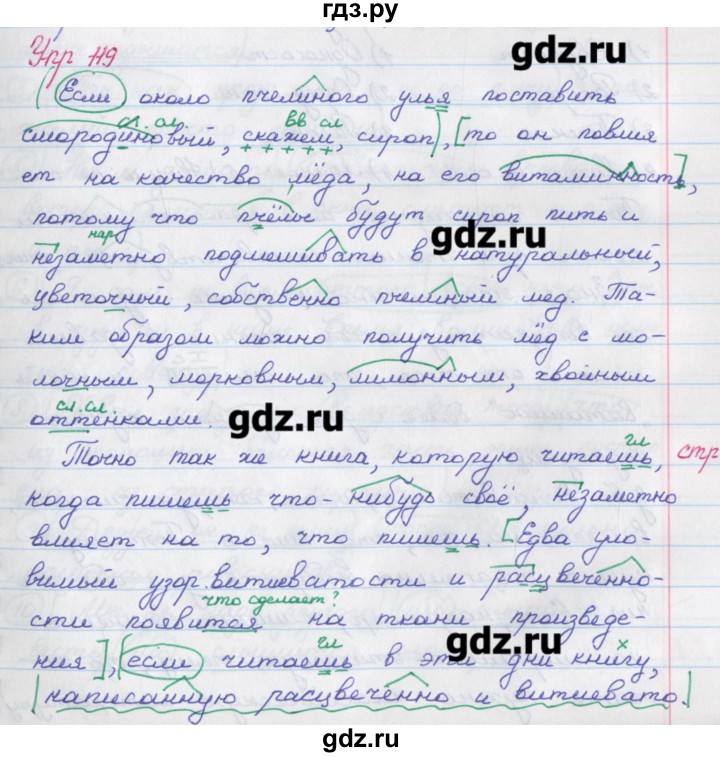 гдз.ру
Упр 119
gdz.ru
(Если около пчелиного улья поставить
сл. сл.
вв сл
смородиновый, скажем, сироп), [то он повлия
ет на качество мёда, на его витаминность],
потому что пчёлы будут сироп пить и
gdz.ru
нар
незаметно подмешивать в натуральный,
цветочный, собственно пчелиный мед. Та-
ким образом можно получить мёд с мо-
лочным, морковным, лимонным, хвойным
сл. сл.
оттенками.
gdz.ru
гл
Точно так же книга, которую читаешь, стр
когда пишешь что-нибудь своё, незаметно
влияет на то, что пишешь. [Едва уло-
вимый узор витиеватости и расцвеченно-
что сделает?
сти появится на ткани произведе-
gdz.ru
гл
х
ния], (если читаешь в эти дни книгу,
|написанную расцвеченно и витиевато.|
gdz.ru